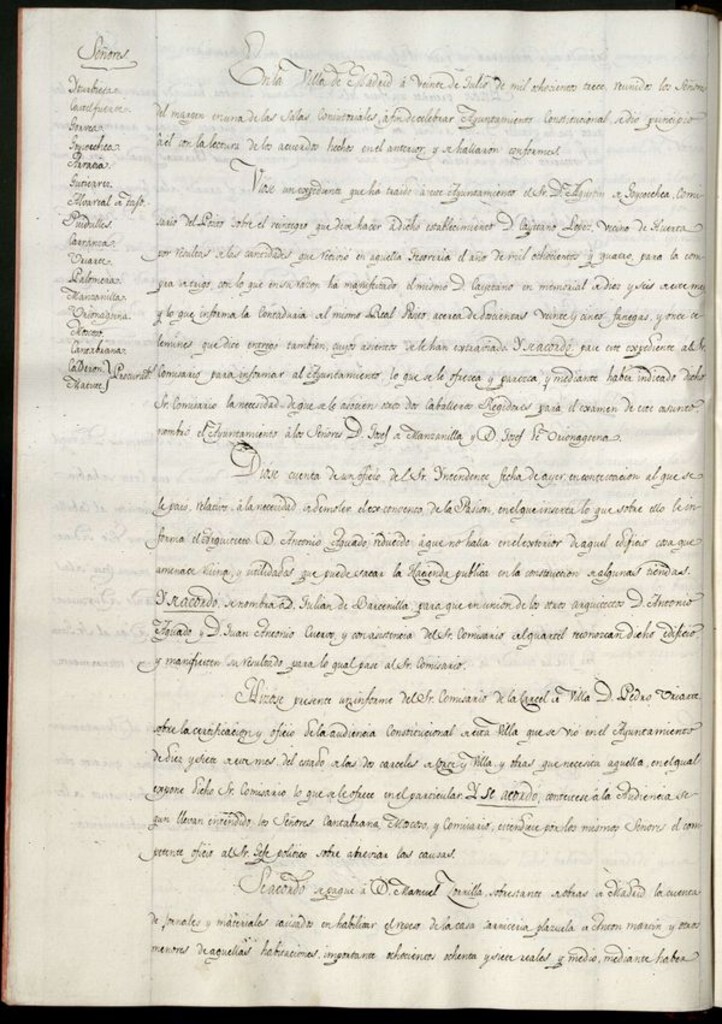 Señores
Yturbieta
Castelfuente
Goyeochea
Gutierrez
Pindulles
Carranza
Uriarte
Palomera
Manzanilla
Urionaguena
Moscoso
Cantabrana
Calderon } Procurad.s
Matute
En la Villa de Madrid á Veinte de Julio de mil ochocientos trece, reunidos los Señores
del margen en una de las Salas Consistoriales, á fin de celebrar Ayuntamiento Constitucional, se dio principio
á él con la lectura de los acuerdos hechos en el anterior, y se hallaron conformes.
Viose un expediente que ha traido á este Ayuntamiento el Sr. Dn. Agustin de Goycoechea, Comi
sario del Posito sobre el reintegro que deve hacer a dicho establecimiento D. Cayetano Lopez, vecino de Huerta
por resultas de las cantidades que recivio en aquella Tesoreria el año de mil ochocientos y quatro para la com
pra de trigo, con lo que en su razon ha manifestado el mismo D. Cayetano en memorial de diez y seis de este mes
y lo que informa la Contaduria del mismo Real Posito, acerca de doscientas veinte y cinco fanegas, y once ce
lemines que dice entregó tambien, cuyos asientos se le han extraviado. Y se acordó, pase este expediente al Sr.
Comisario para informar al Ayuntamiento, lo que se le ofrezca y parezca, y mediante haber indicado dicho
Sr. Comisario la necesidad de que se le asocien otros dos Caballeros Regidores para el examen de este asunto,
nombró el Ayuntamiento á los Señores D. Josef de Manzanilla y D. Josef de Urionaguena.
Diose cuenta de un oficio del Sr. Yntendente fecha de ayer, en contestacion al que se
le pasó, relativo á la necesidad de demoler el ex convento de la Pasion, en el que inserta lo que sobre ello le in
forma el Arquitecto D. Antonio Aguado, reducido á que no halla en el exterior de aquel edificio cosa que
amenace ruina, y utilidades que puede sacar la Hacienda publica en la construccion de algunas tiendas.
Y se acordó, se nombra á D. Julian de Barcenilla, para que en union de los otros arquitectos D. Antonio
Aguado y D. Juan Antonio Cuervo, y con asistencia del Sr. Comisario del quartel reconozcan dicho edificio
y manifiesten su resultado, para lo qual pase al Sr. Comisario.
Hizose presente un informe del Sr. Comisario de la Carcel de Villa D. Pedro Uriarte
sobre la certificacion y oficio de la audiencia Constitucional de esta Villa que se vió en el Ayuntamiento
de diez y siete de este mes, del estado de las dos carceles de Corte y Villa, y otras que necesita aquella, en el qual
expone dicho Sr. Comisario lo que se le ofrece en el particular. Y se acordó, contextese á la Audiencia se
gun llevan entendido los Señores Cantabrana, Moscoso, y Comisario, extendiese por los mismos Señores el com
petente oficio al Sr. Gefe politico sobre abreviar las causas.
Se acordó se pague á D. Manuel Zorrilla, sobrestante de obras de Madrid la cuenta
de jornales y materiales causados en habilitar el repeso de la casa carniceria plazuela de Anton martin y otros
menores de aquellas habitaciones, importante ochocientos ochenta y siete reales y medio, mediante haber